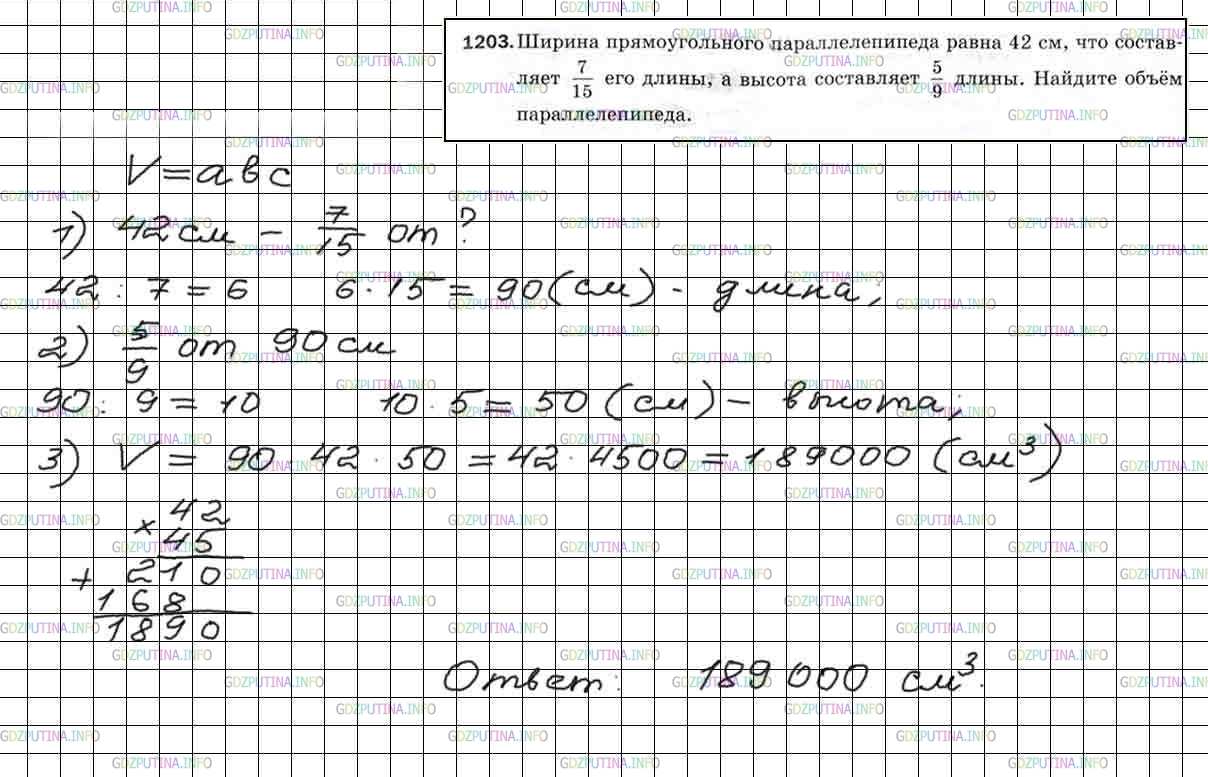 1203. Ширина прямоугольного параллелепипеда равна 42 см, что состав-
ляет 7/15 его длины, а высота составляет 5/9 длины. Найдите объём
параллелепипеда.
V = a b c
1) 42 см – 7/15 от ?
42 : 7 = 6 6 · 15 = 90 (см) - длина;
2) 5/9 от 90 см
90 : 9 = 10 10 · 5 = 50 (см) – высота;
3) V = 90 · 42 · 50 = 42 · 4500 = 189000 (см³)
× 42
45
+ 210
168
1890
Ответ: 189 000 см³.
GDZPUTINA.INFO